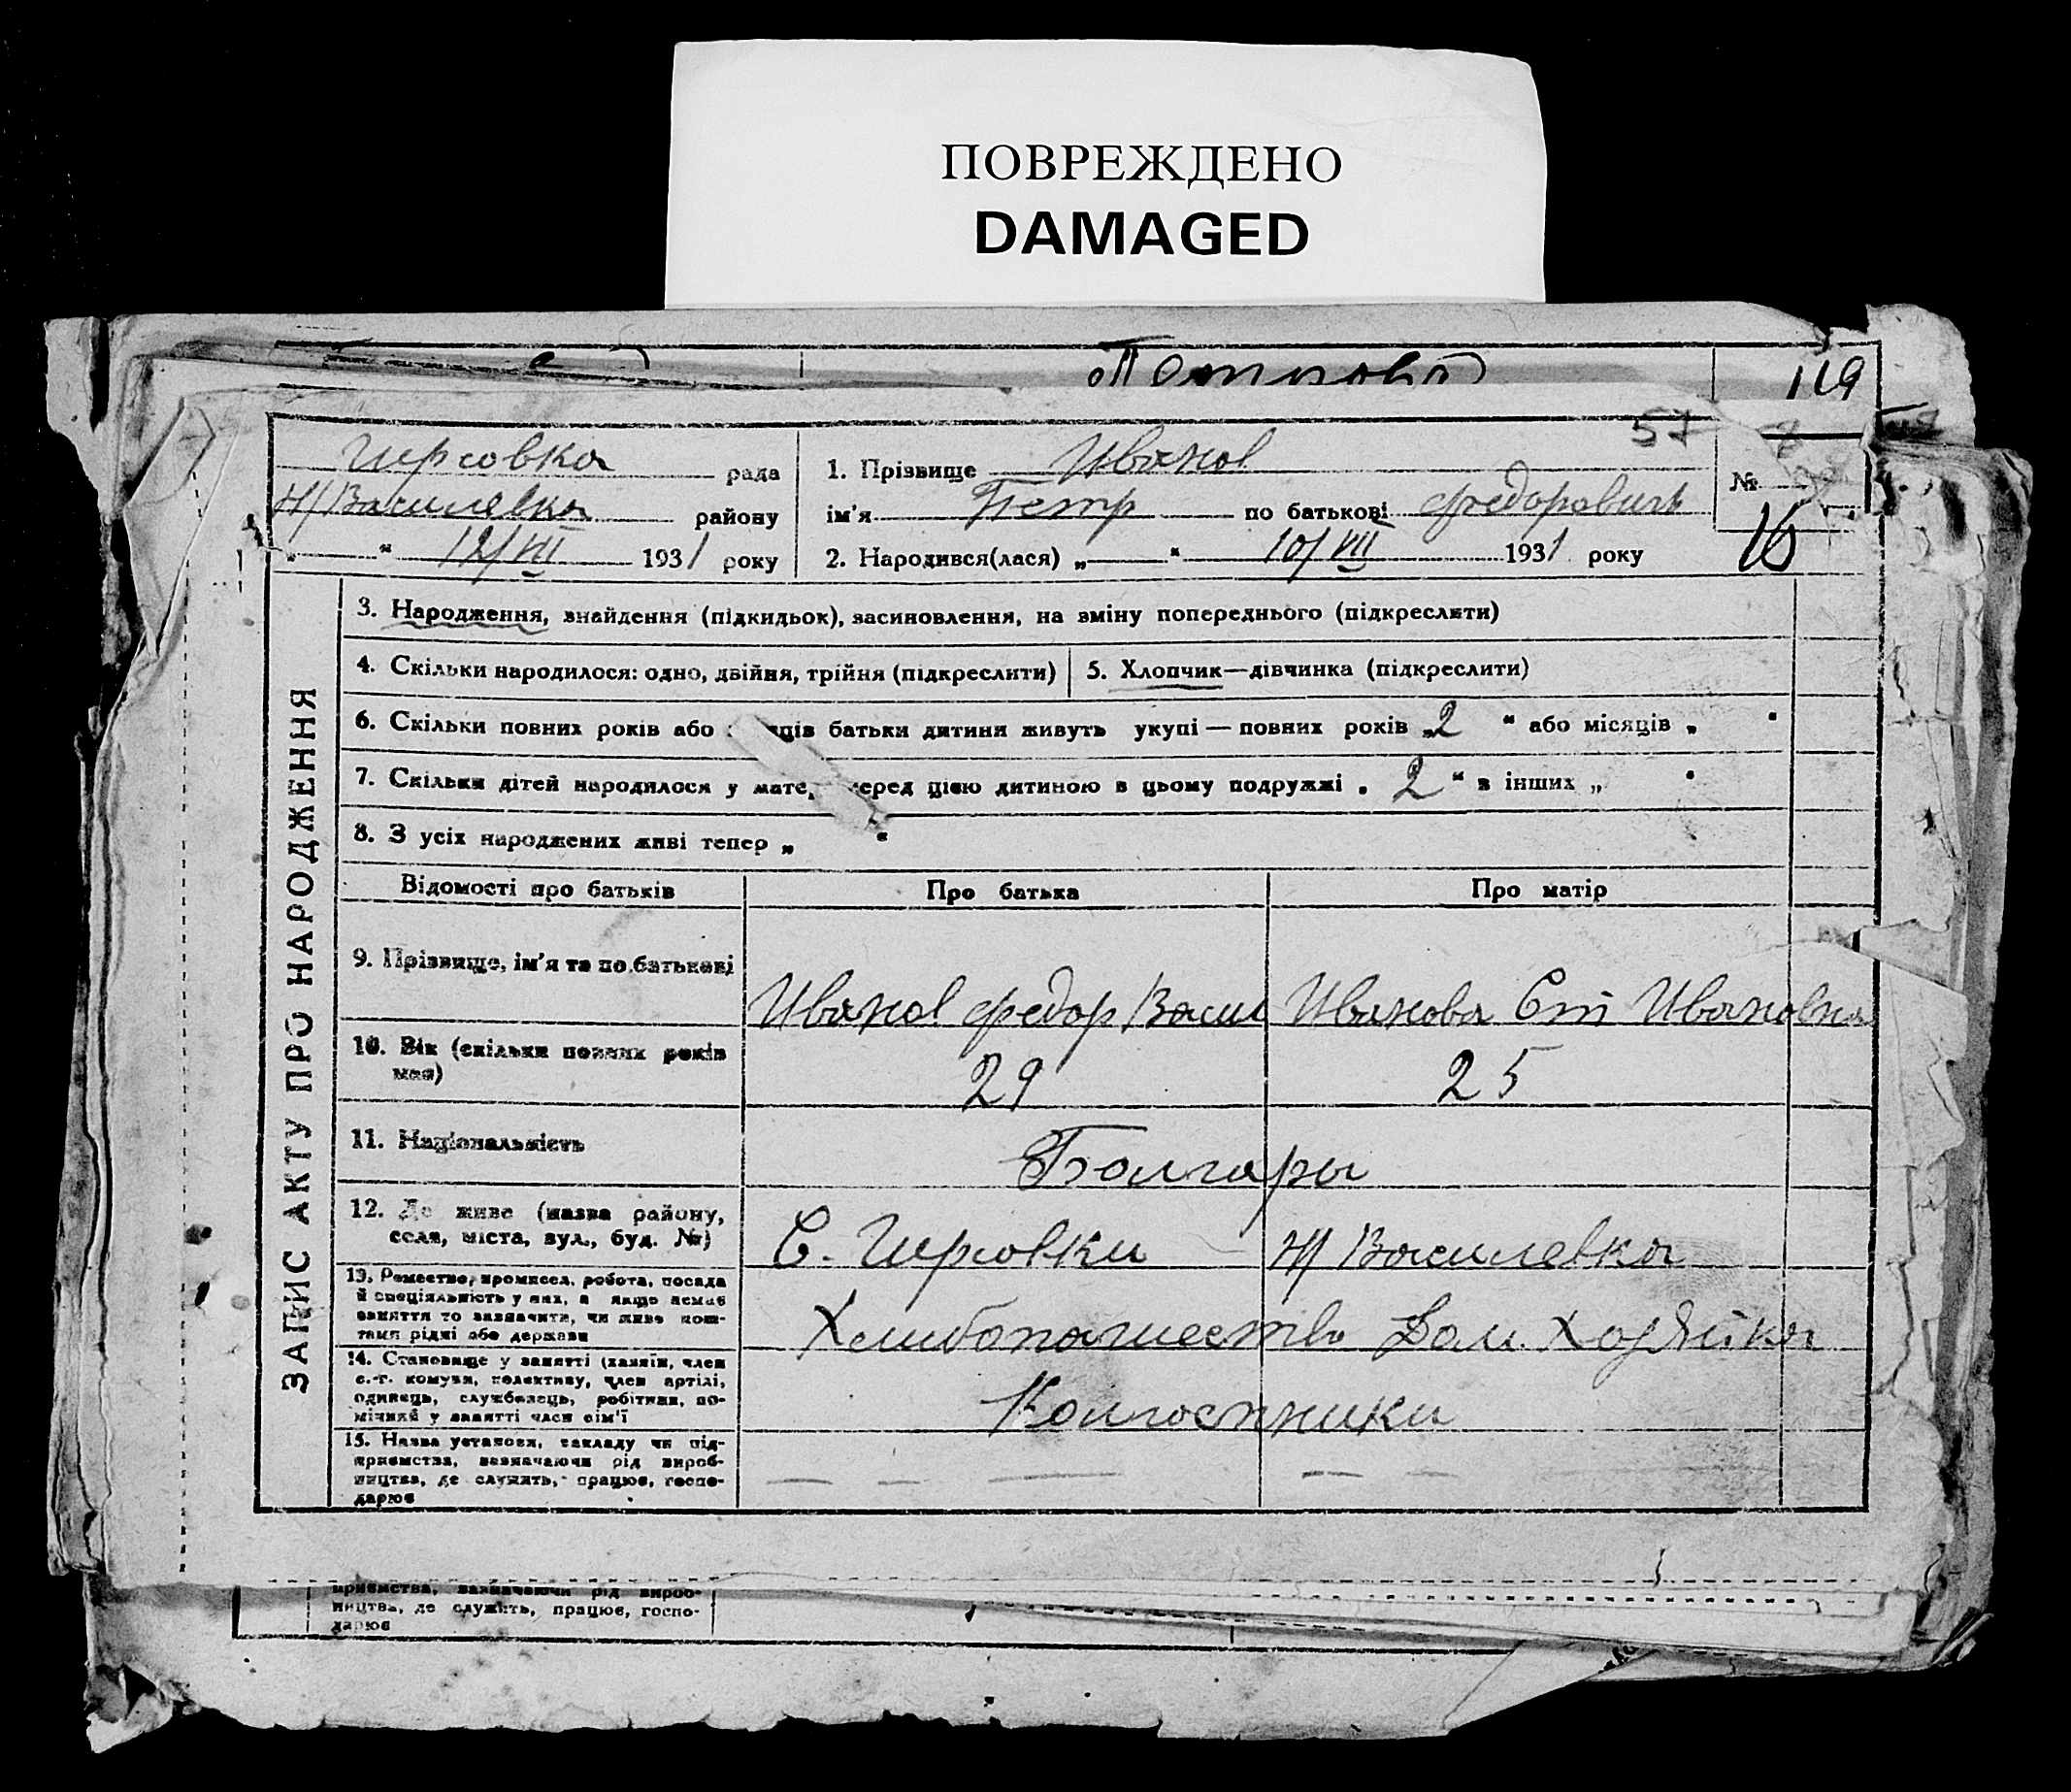 ПОВРЕЖДЕНО
DAMAGED
119
57
Гирсовка рада
Н/Василевка району
" " 12/VII 1931 року
1. Прізвище Иванов
ім'я Петр по батькові Федорович
2. Народився(лася) „ " 10/VII 1931 року
№
16
ЗАПИС АКТУ ПРО НАРОДЖЕННЯ
3. Народження, знайдення (підкидьок), засиновлення, на зміну попереднього (підкреслити)
4. Скільки народилося: одно, двійня, трійня (підкреслити)
5. Хлопчик—дівчинка (підкреслити)
6. Скільки повних років або батьки дитини живуть укупі — повних років „2 " або місяців „ "
7. Скільки дітей народилося у перед цією дитиною в цьому подружжі „ 2 " в інших „ "
8. З усіх народжених живі тепер „ "
Відомості про батьків Про батька Про матір
9. Прізвище, ім'я та по батькові
Иванов Федор Васил Иванова Ст Ивановна
10. Вік (скільки повних років
має)
29 25
11. Національність
Болгары
12. Де живе (назва району,
села, міста, вул., буд. №)
С. Гирсовки Н/Василевка
13. Ремество, промисел, робота, посада
й спеціяльність у них, а якщо немає
заняття то зазначити, чи живе кош-
тами рідні або держави
Хлибопашество Дом. Хозяйка
14. Становище у занятті (хазяїн, член
с.-г. комуни, колективу, член артілі,
одинець, службовець, робітник, по-
мічний у занятті член сім'ї
Колгоспники
15. Назва установи, закладу чи під-
приємства, зазначаючи рід вироб-
ництва, де служить, працює, госпо-
дарює
приємства, зазначаючи рід вироб-
ництва, де служить, працює, госпо-
дарює